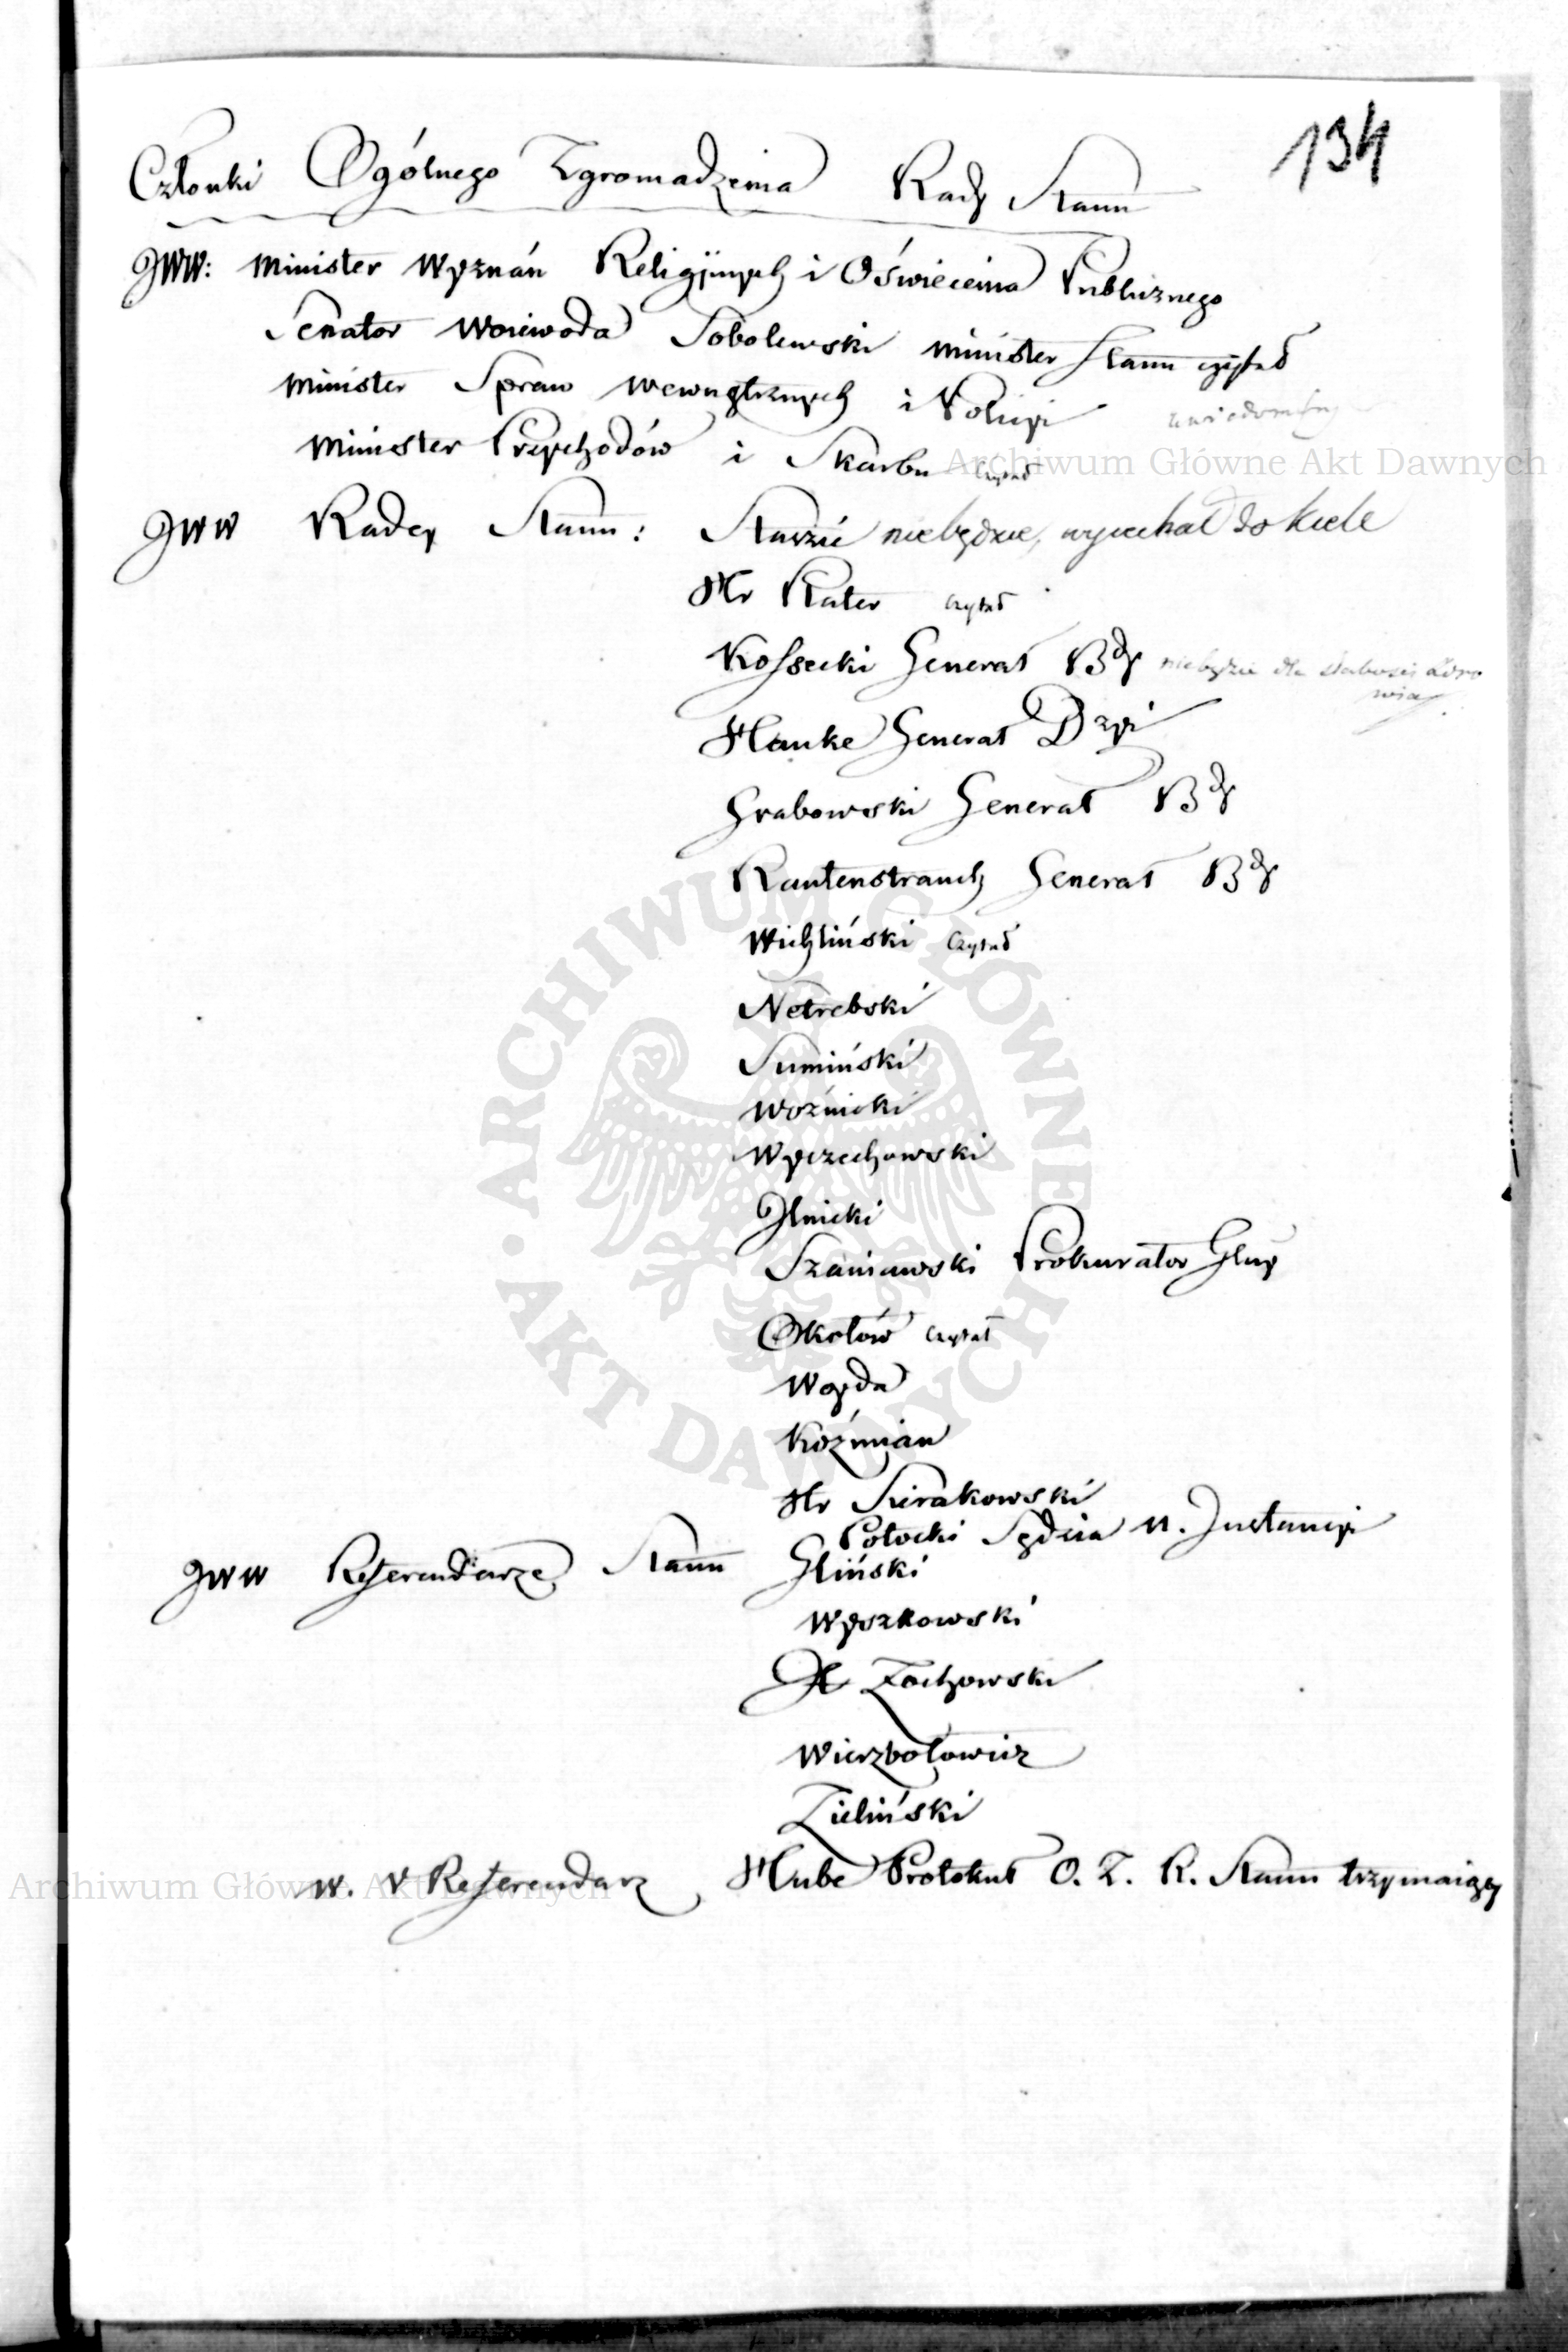 134
Członki Ogólnego Zgromadzenia Rady Stanu
JWW: Minister Wyznań Religijnych i Oświecenia Publicznego
Senator Woiewoda Sobolewski Minister Stanu czytał
Minister Spraw Wewnętrznych i Policyi uwiadomiony
Minister Przychodów i Skarbu czytał
JWW Radcy Stanu: Staszic niebędzie, wyiechał do Kielc
Hr Plater czytał
Kossecki Generał Bdy niebędzie dla słabości zdro
wia
Hauke Generał Dzyi
Grabowski Generał Bdy
Rautenstrauch Generał Bdy
Wichliński Czytał
Netrebski
Sumiński
Woźnicki
Wyczechowski
Ilnicki
Szaniawski Prokurator Glny
Okołów czytał
Woyda
Koźmian
Hr Sierakowski
Potocki Sędzia N. Instancyi
JWW Referendarze Stanu Gliński
Wyszkowski
X Żochowski
Wierzbołowicz
Zieliński
W. V Referendarz Hube Protokuł O. Z. R. Stanu trzymaiący
Archiwum Główne Akt Dawnych
ARCHIWUM GŁÓWNE • AKT DAWNYCH •
Archiwum Główne Akt Dawnych